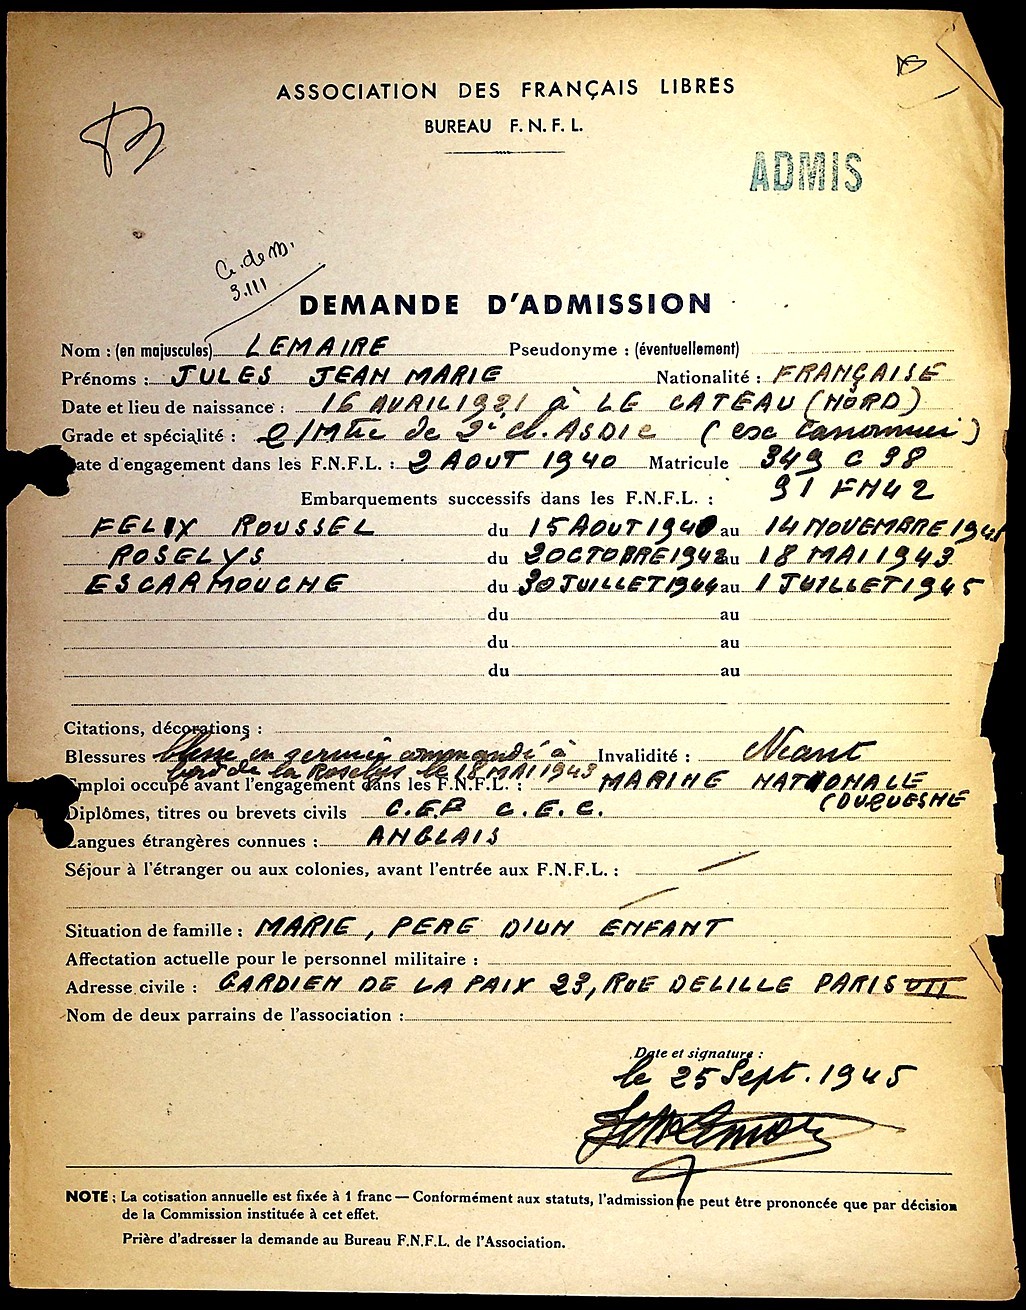 ASSOCIATION DES FRANÇAIS LIBRES
BUREAU F.N.F.L.
ADMIS
C. de M.
3.111
DEMANDE D'ADMISSION
Nom : (en majuscules) LEMAIRE Pseudonyme : (éventuellement)
Prénoms : JULES JEAN MARIE Nationalité : FRANÇAISE
Date et lieu de naissance : 16 AVRIL 1921 à LE CATEAU (NORD)
Grade et spécialité : Q/Mtre de 2e cl. ASDIC (exe Canonnier)
ate d'engagement dans les F.N.F.L. : 2 AOUT 1940 Matricule 349 C 38
Embarquements successifs dans les F.N.F.L. : 91 FN42
FELIX ROUSSEL du 15 AOUT 1940 au 14 NOVEMBRE 1941
ROSELYS du 2 OCTOBRE 1942 au 18 MAI 1943
ESCARMOUCHE du 30 JUILLET 1944 au 1 JUILLET 1945
du au
du au
du au
Citations, décorations :
Blessures blessé en service commandé à Invalidité : Néant
bord de la Roselys le 18 MAI 1943
mploi occupé avant l'engagement dans les F.N.F.L. : MARINE NATIONALE
(DUQUESNE
Diplômes, titres ou brevets civils C.E.P C.E.C.
Langues étrangères connues : ANGLAIS
Séjour à l'étranger ou aux colonies, avant l'entrée aux F.N.F.L. : —
—
Situation de famille : MARIE, PERE D'UN ENFANT
Affectation actuelle pour le personnel militaire :
Adresse civile : GARDIEN DE LA PAIX 23, RUE DELILLE PARIS VII
Nom de deux parrains de l'association :
Date et signature :
le 25 Sept. 1945
NOTE : La cotisation annuelle est fixée à 1 franc — Conformément aux statuts, l'admission ne peut être prononcée que par décision
de la Commission instituée à cet effet.
Prière d'adresser la demande au Bureau F.N.F.L. de l'Association.